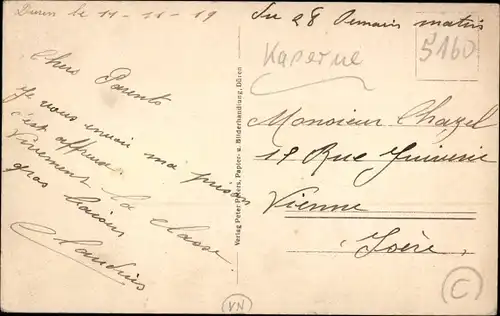 Düren le 11 - 11 - 19
Chers Parents
Je vous envoi ma prison
c'est affreux
Vivement la classe
gros baisers
Claudius
Verlag Peter Peters, Papier- u. Bilderhandlung, Düren
Su 28 Demain matin
Kaserne
5160
Monsieur Chazel
18 Rue Juiverie
Vienne
Isère
VN
C